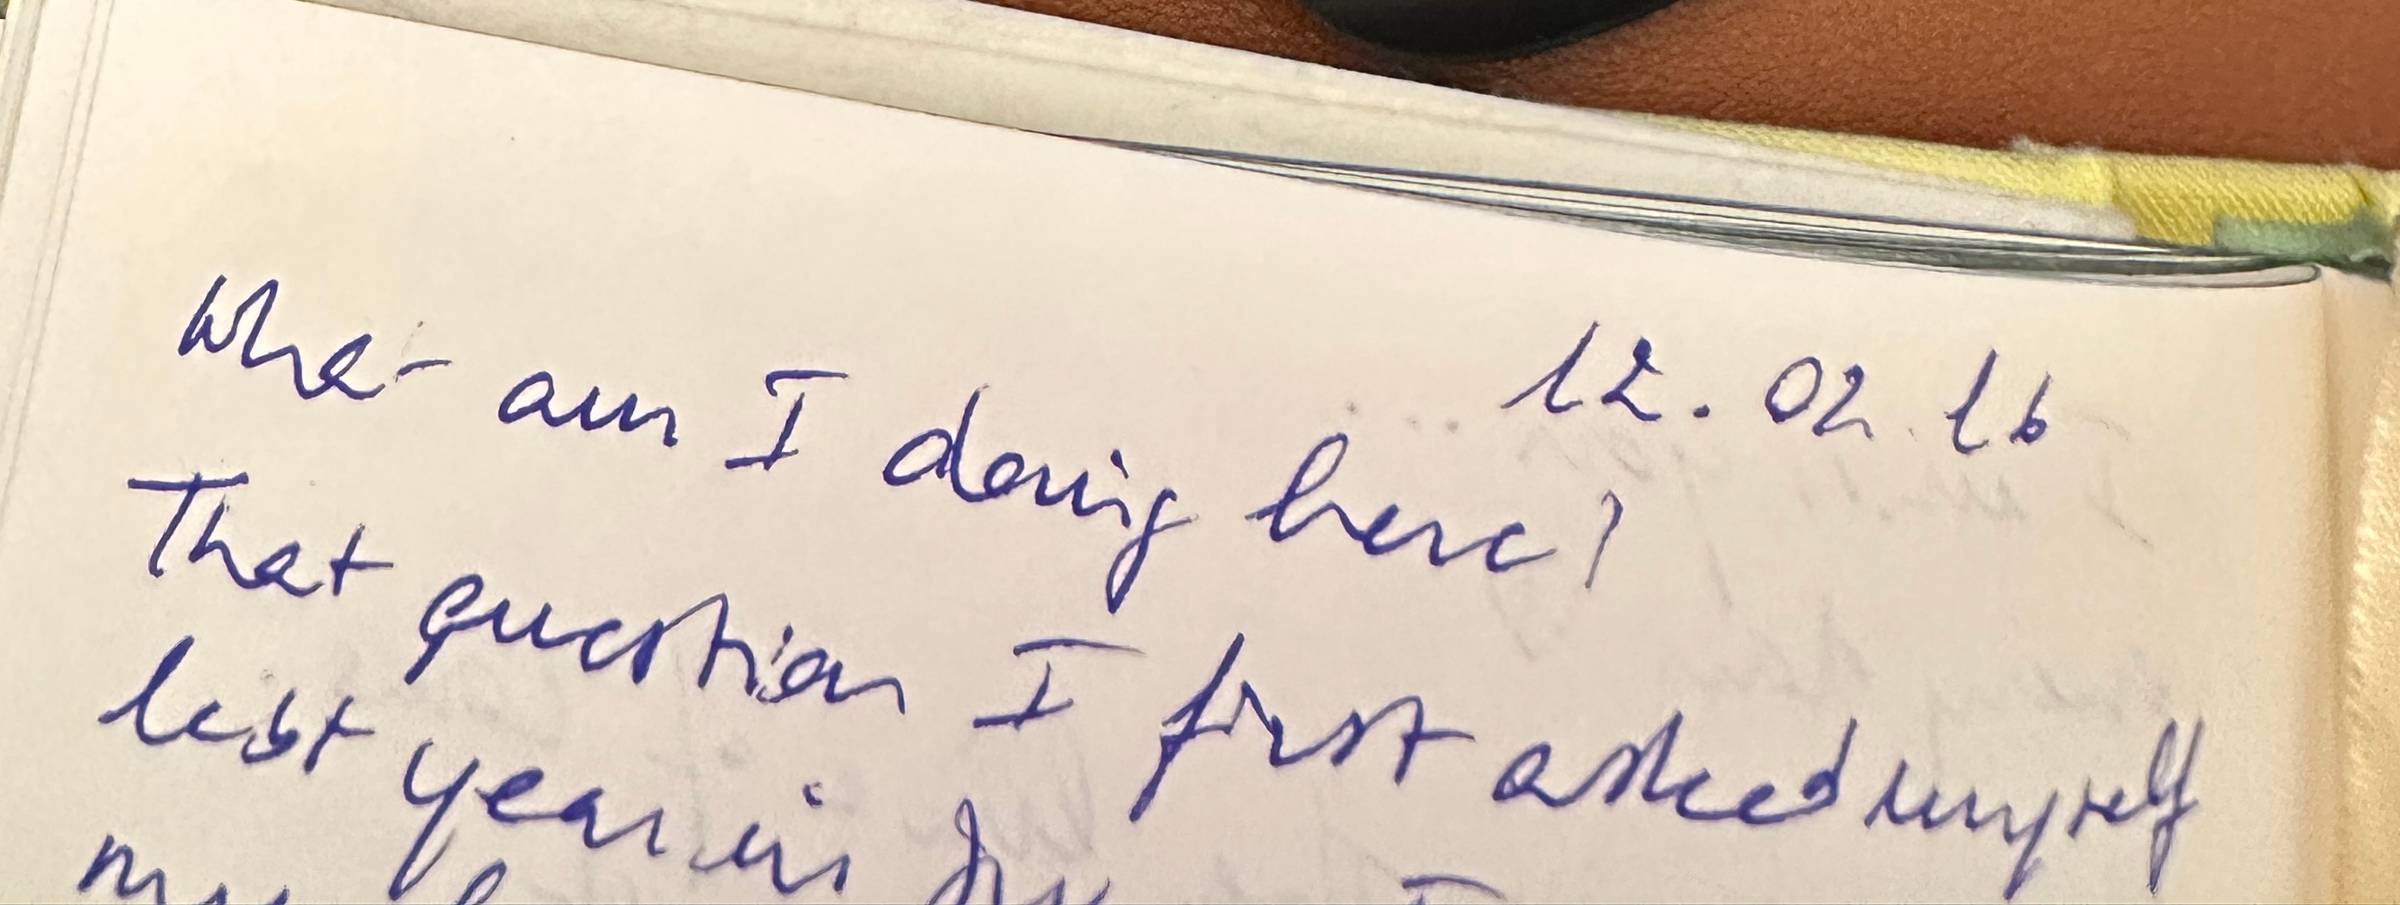 12.02.16
What am I doing here?
That question I first asked myself
last year in